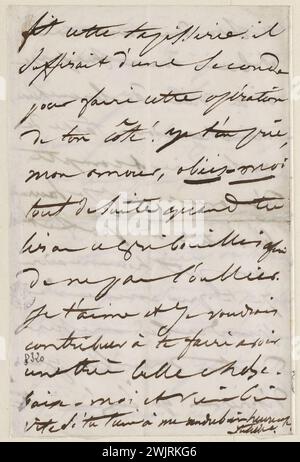 fît cette tapisserie. il
suffirait d'une seconde
pour faire cette opération
de ton côté. je t'en prie,
mon amour, obéis-moi
tout de suite quand tu
liras ce gribouillis afin
de ne pas l'oublier.
Je t'aime et je voudrais
contribuer à te faire avoir
une très belle chose.
Baise-moi et viens bien
vite si tu tiens à me rendre bien heureuse
Juliette
8320
alamy
Image ID: 2WJRKG6
www.alamy.com